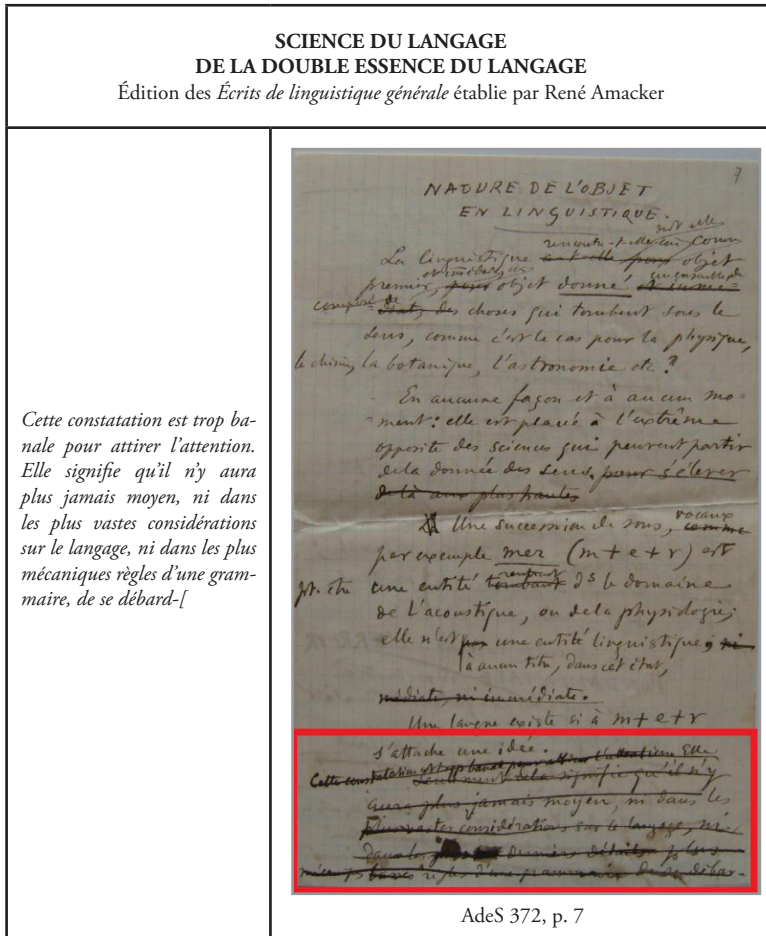 SCIENCE DU LANGAGE
DE LA DOUBLE ESSENCE DU LANGAGE
Édition des Écrits de linguistique générale établie par René Amacker
Cette constatation est trop ba-
nale pour attirer l'attention.
Elle signifie qu'il n'y aura
plus jamais moyen, ni dans
les plus vastes considérations
sur le langage, ni dans les plus
mécaniques règles d'une gram-
maire, de se débard-[
7
NATURE DE L'OBJET
EN LINGUISTIQUE.
soit elle
rencontre-t-elle comme
La linguistique a-t-elle pour objet
et immédiat, un
premier, pour objet donné et immé-
composé de diat, des choses qui tombent sous le
sens, comme c'est le cas pour la physique,
la chimie, la botanique, l'astronomie etc.?
En aucune façon et à aucun mo-
ment: elle est placée à l'extrême
opposite des sciences qui peuvent partir
de la donnée des sens, pour s'élever
de là aux plus hautes
Une succession de sons, vocaux comme
par exemple mer (m + e + r) est
pt. être une entité tombant rentrant ds le domaine
de l'acoustique, ou de la physiologie;
elle n'est pas une entité linguistique; ni
à aucun titre, dans cet état,
médiate, ni immédiate.
Une langue existe si à m + e + r
s'attache une idée.
Cette constatation est trop banale pour attirer l'attention Elle
Seulement cela signifie qu'il n'y
aura plus jamais moyen, ni dans les
plus vastes considérations sur le langage, ni
dans les derniers détails plus
règles d'une grammaire de se débar-
AdeS 372, p. 7